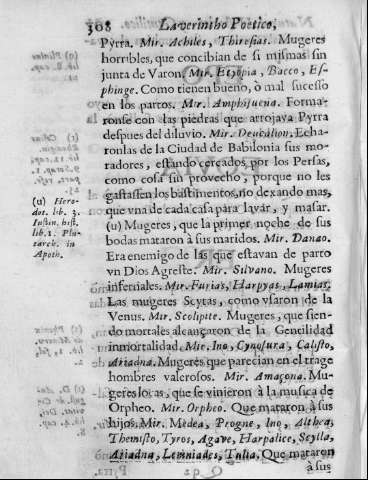 308 Laverintho Poëtico,
Pyrra. Mir. Achiles, Thiresias. Mugeres
horribles, que concibian de si mismas sin
junta de Varon. Mir. Etyopia, Bacco, Es-
phinge. Como tienen bueno, ò mal sucesso
en los partos. Mir. Amphisuena. Forma-
ronse con las piedras que arrojava Pyrra
despues del diluvio. Mir. Deucalion. Echa-
ronlas de la Ciudad de Babilonia sus mo-
radores, estando cercados por los Persas,
como cosa sin provecho, porque no les
gastassen los bastimentos, no dexando mas,
que vna de cada casa para lavar, y masar.
(u) Mugeres, que la primer noche de sus
bodas mataron à sus maridos. Mir. Danao.
Era enemigo de las que estavan de parto
vn Dios Agreste. Mir. Silvano. Mugeres
infernales. Mir. Furias, Harpyas, Lamias.
Las mugeres Scytas, como vsaron de la
Venus. Mir. Scolipite. Mugeres, que sien-
do mortales alcançaron de la Gentilidad
inmortalidad. Mir. Ino, Cynosura, Calisto,
Ariadna. Mugeres que parecian en el trage
hombres valerosos. Mir. Amaçona. Mu-
geres locas, que se vinieron à la musica de
Orpheo. Mir. Orpheo. Que mataron à sus
hijos. Mir. Medea, Progne, Ino, Althea,
Themisto, Tyros, Agave, Harpalice, Scylla,
Ariadna, Lemniades, Tulia. Que mataron
à sus
(u) Hero-
dot. lib. 3.
Iustin. hist.
lib. 1. Plu-
tarch. in
Apoth.